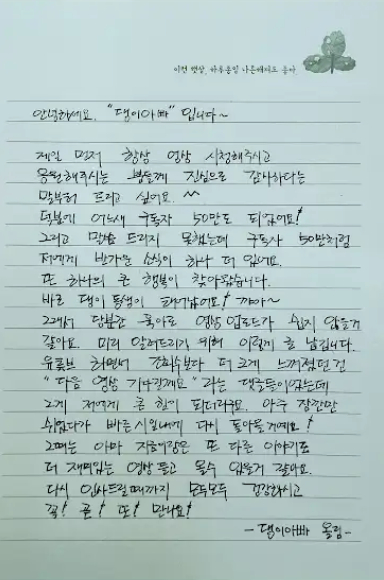 안녕하세요. "댕이아빠" 입니다~
제일 먼저 항상 영상 시청해주시고
응원해주시는 분들께 진심으로 감사하다는
말부터 드리고 싶어요. ^^
덕분에 어느새 구독자 50만도 되었어요!
그리고 말씀 드리지 못했는데 구독자 50만처럼
저에게 반가운 소식이 하나 더 있어요.
또 하나의 큰 행복이 찾아왔습니다.
바로 댕이 동생이 태어났어요! 꺄아~
그래서 당분간 육아로 영상 업로드가 쉽지 않을거
같아요. 미리 알려드리기 위해 이렇게 글 남깁니다.
유튜브 하면서 조회수보다 더 크게 느껴졌던 건
"다음 영상 기다릴게요" 라는 댓글들이었는데
그게 저에게 큰 힘이 되더라구요. 아주 잠깐만
쉬었다가 빠른 시일내에 다시 돌아올게요!
그때는 아마 또 다른 이야기로
더 재미있는 영상 들고 올수 있을거 같아요.
다시 인사드릴때까지 모두모두 건강하시고
꼭! 꼭! 또! 만나요!
- 댕이아빠 올림 -